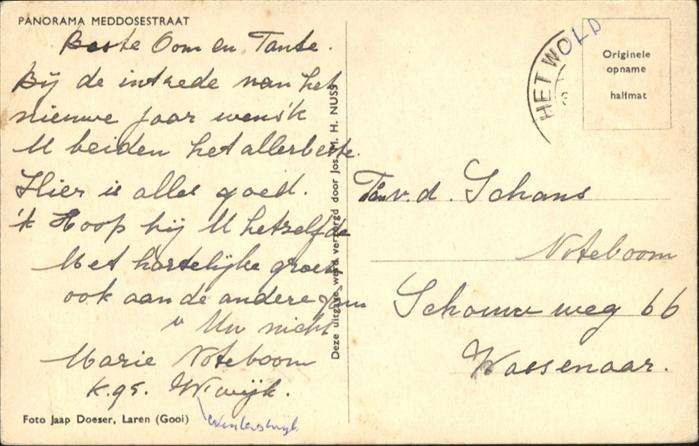 PANORAMA MEDDOSESTRAAT
Beste Oom en Tante.
Bij de intrede van het
nieuwe jaar wensk
U beiden het allerbeste.
Hier is alles goed.
'k Hoop bij U hetzelfde
Met hartelijke groeten
ook aan de andere
v Uw nicht
Marie Noteboom
K.95. W.wijk.
Winterswijk
Foto Jaap Doeser, Laren (Gooi)
Deze uitgave werd verzorgd door Jos. M. H. NUSS
HET WOLD
Originele
opname
halfmat
Fam v.d. Schans
Noteboom
Schouwweg 66
Wassenaar.